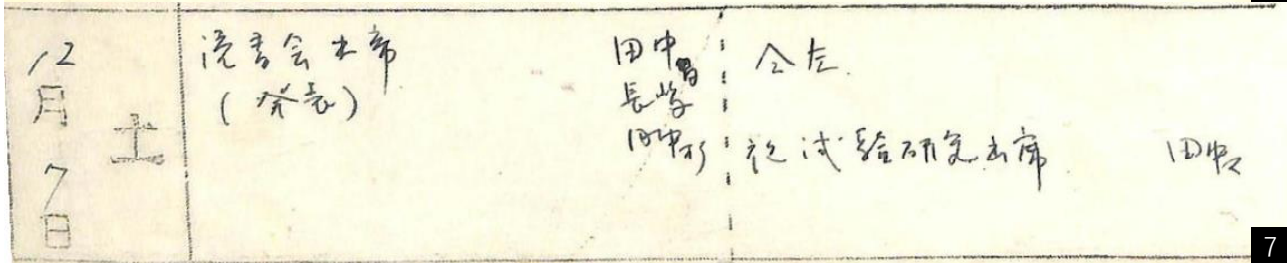 12月7日
土
読書会出席
(発表)
田中
長
田中
仝左
試験研究出席
田中
7